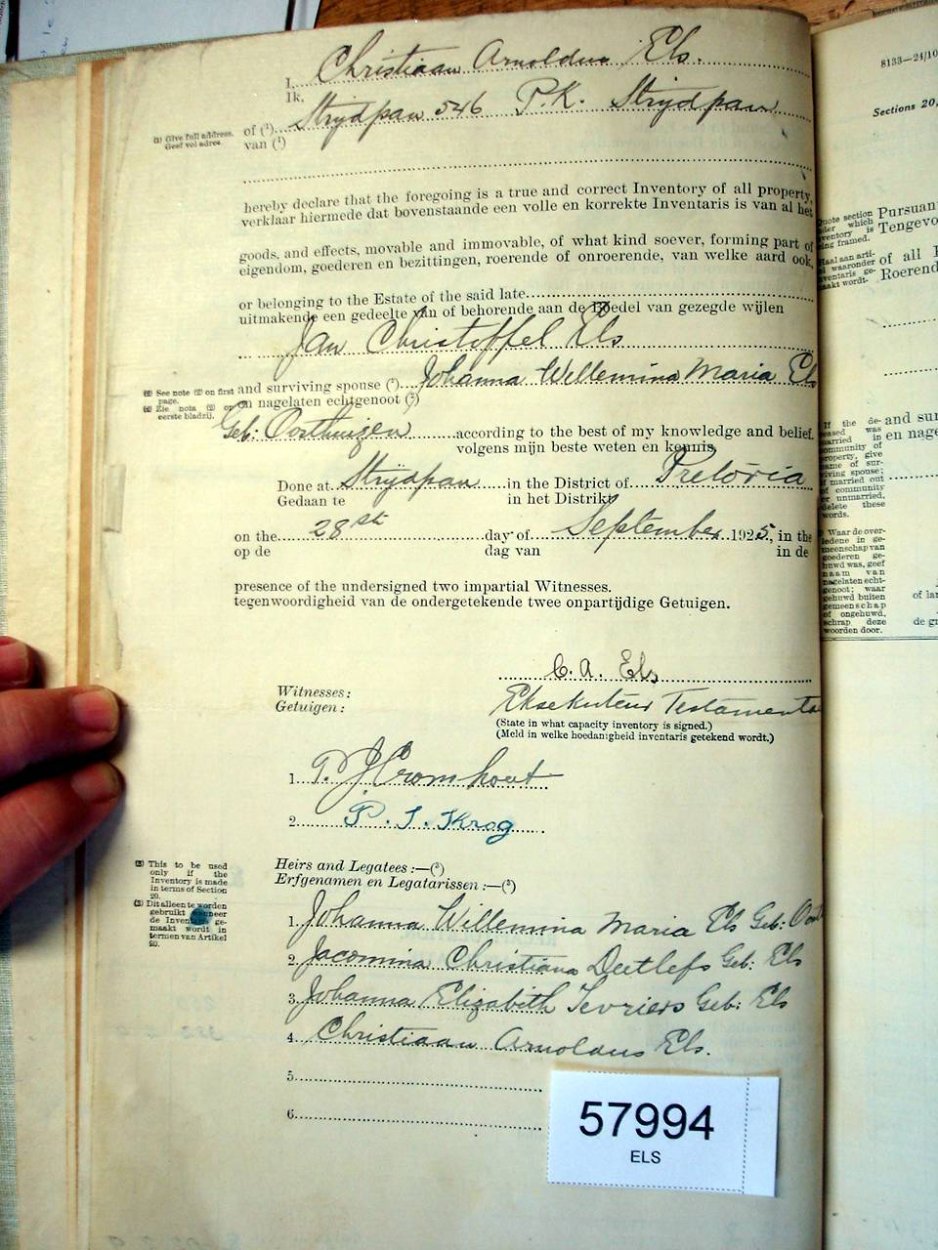 I, Christiaan Arnoldus Els.
Ik,
(1) Give full address.
Geef vol adres.
of (1) Strydpan 546 P.K. Strydpan
van (1)
hereby declare that the foregoing is a true and correct Inventory of all property,
verklaar hiermede dat bovenstaande een volle en korrekte Inventaris is van al het
goods, and effects, movable and immovable, of what kind soever, forming part of
eigendom, goederen en bezittingen, roerende of onroerende, van welke aard ook,
or belonging to the Estate of the said late
uitmakende een gedeelte van of behorende aan de Boedel van gezegde wijlen
Jan Christoffel Els
(2) See note (2) on first page.
(2) Zie nota (2) op eerste bladzij.
and surviving spouse (2) Johanna Willemina Maria Els
en nagelaten echtgenoot (2)
Geb: Oosthuizen according to the best of my knowledge and belief.
volgens mijn beste weten en kennis.
Done at Strydpan in the District of Pretoria
Gedaan te in het Distrikt
on the 28st day of September 1925, in the
op de dag van in de
presence of the undersigned two impartial Witnesses.
tegenwoordigheid van de ondergetekende twee onpartijdige Getuigen.
C. A. Els
Witnesses:
Getuigen:
Eksekuteur Testamenta
(State in what capacity inventory is signed.)
(Meld in welke hoedanigheid inventaris getekend wordt.)
1. P. J. Cromhout
2. P. J. Krog
(3) This to be used
only if the
Inventory is made
in terms of Section
20.
(3) Dit alleen te worden
gebruikt wanneer
de Inventaris ge-
maakt wordt in
termen van Artikel
20.
Heirs and Legatees:—(3)
Erfgenamen en Legatarissen:—(3)
1. Johanna Willemina Maria Els Geb: Oost
2. Jacomina Christiana Deetlefs Geb: Els
3. Johanna Elizabeth Geb: Els
4. Christiaan Arnoldus Els.
5.
6.
57994
ELS
8133—24/10
Sections 20,
Quote section
under which
inventory is
being framed.
Pursuan
Tengevo
of all
Roerend
If the de-
ceased was
married in
community of
property, give
name of sur-
viving spouse;
if married out
of community
or unmarried,
delete these
words.
and sur
en nage
Waar de over-
ledene in ge-
meenschap van
goederen ge-
huwd was, geef
naam van
nagelaten echt-
genoot; waar
gehuwd buiten
gemeenschap
of ongehuwd,
schrap deze
woorden door.
of lan
de gr